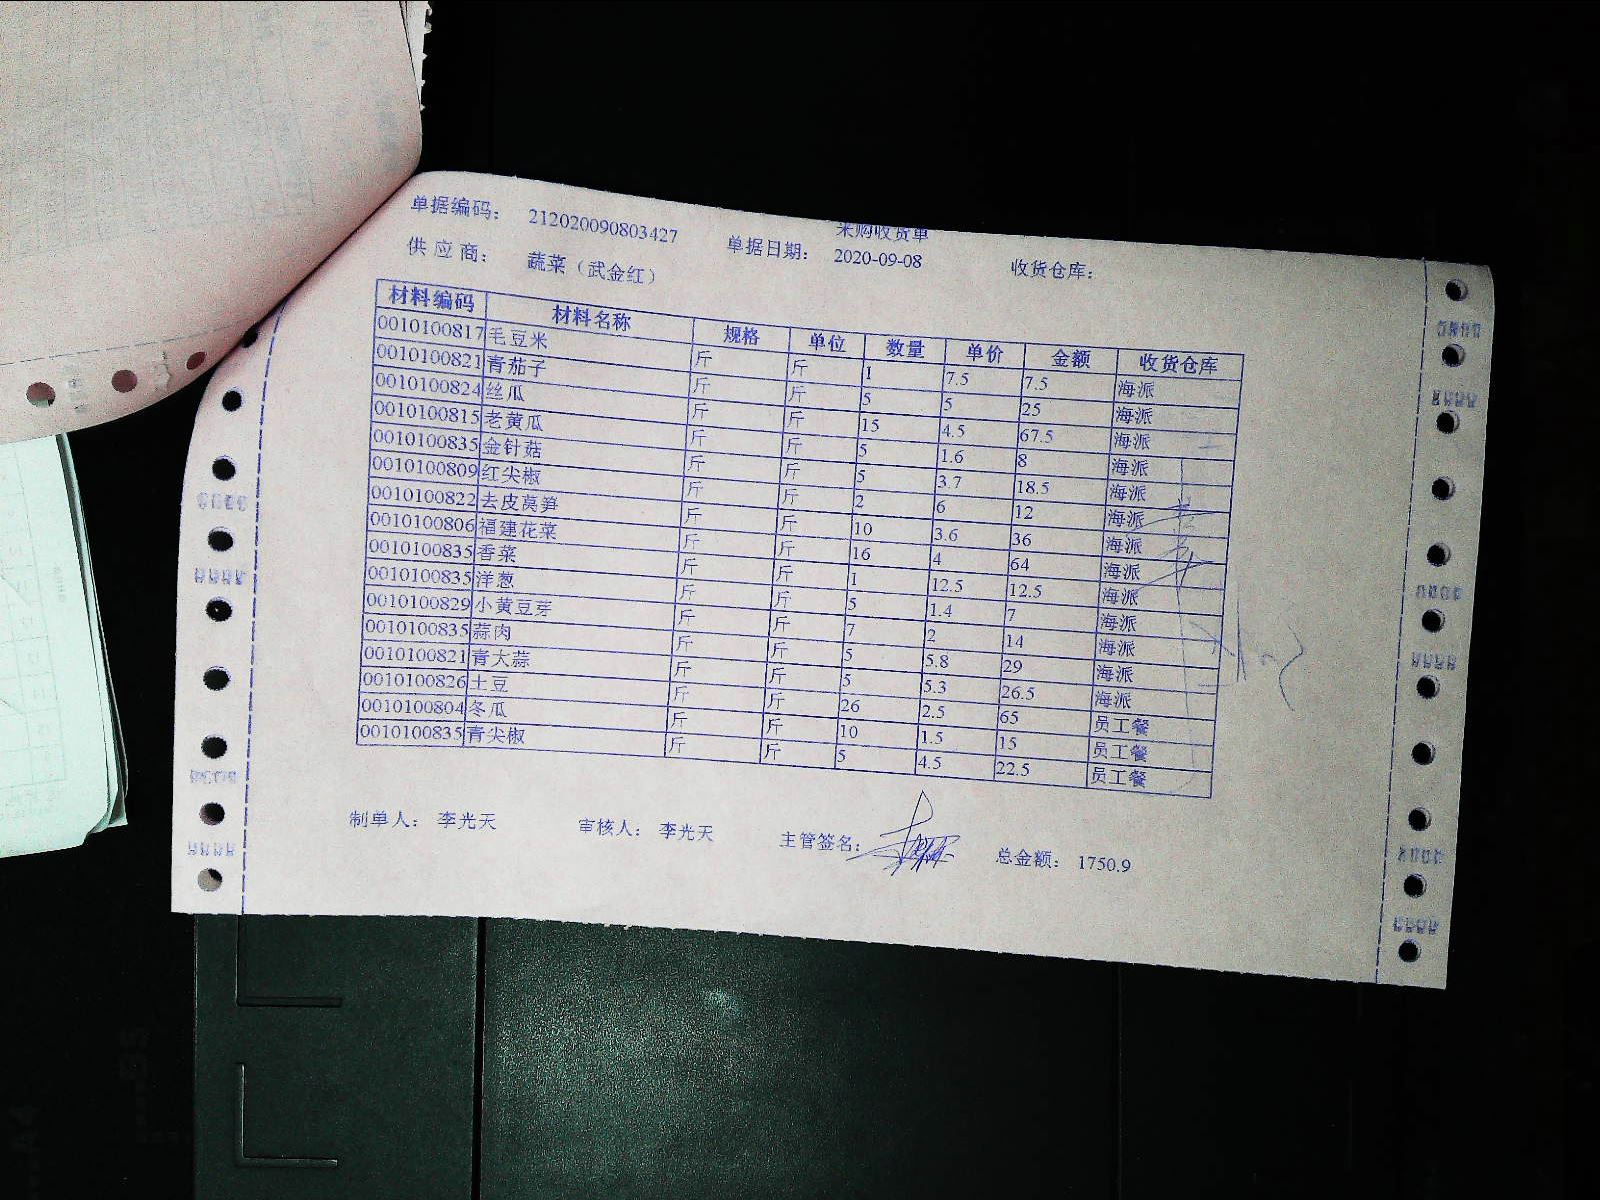 采购收货单
单据编码： 212020090803427 单据日期： 2020-09-08 收货仓库：
供应商： 蔬菜（武金红）
材料编码 材料名称 规格 单位 数量 单价 金额 收货仓库
0010100817 毛豆米 斤 斤 1 7.5 7.5 海派
0010100821 青茄子 斤 斤 5 5 25 海派
0010100824 丝瓜 斤 斤 15 4.5 67.5 海派
0010100815 老黄瓜 斤 斤 5 1.6 8 海派
0010100835 金针菇 斤 斤 5 3.7 18.5 海派
0010100809 红尖椒 斤 斤 2 6 12 海派
0010100822 去皮莴笋 斤 斤 10 3.6 36 海派
0010100806 福建花菜 斤 斤 16 4 64 海派
0010100835 香菜 斤 斤 1 12.5 12.5 海派
0010100835 洋葱 斤 斤 5 1.4 7 海派
0010100829 小黄豆芽 斤 斤 7 2 14 海派
0010100835 蒜肉 斤 斤 5 5.8 29 海派
0010100821 青大蒜 斤 斤 5 5.3 26.5 海派
0010100826 土豆 斤 斤 26 2.5 65 员工餐
0010100804 冬瓜 斤 斤 10 1.5 15 员工餐
0010100835 青尖椒 斤 斤 5 4.5 22.5 员工餐
制单人： 李光天 审核人： 李光天 主管签名： 总金额： 1750.9